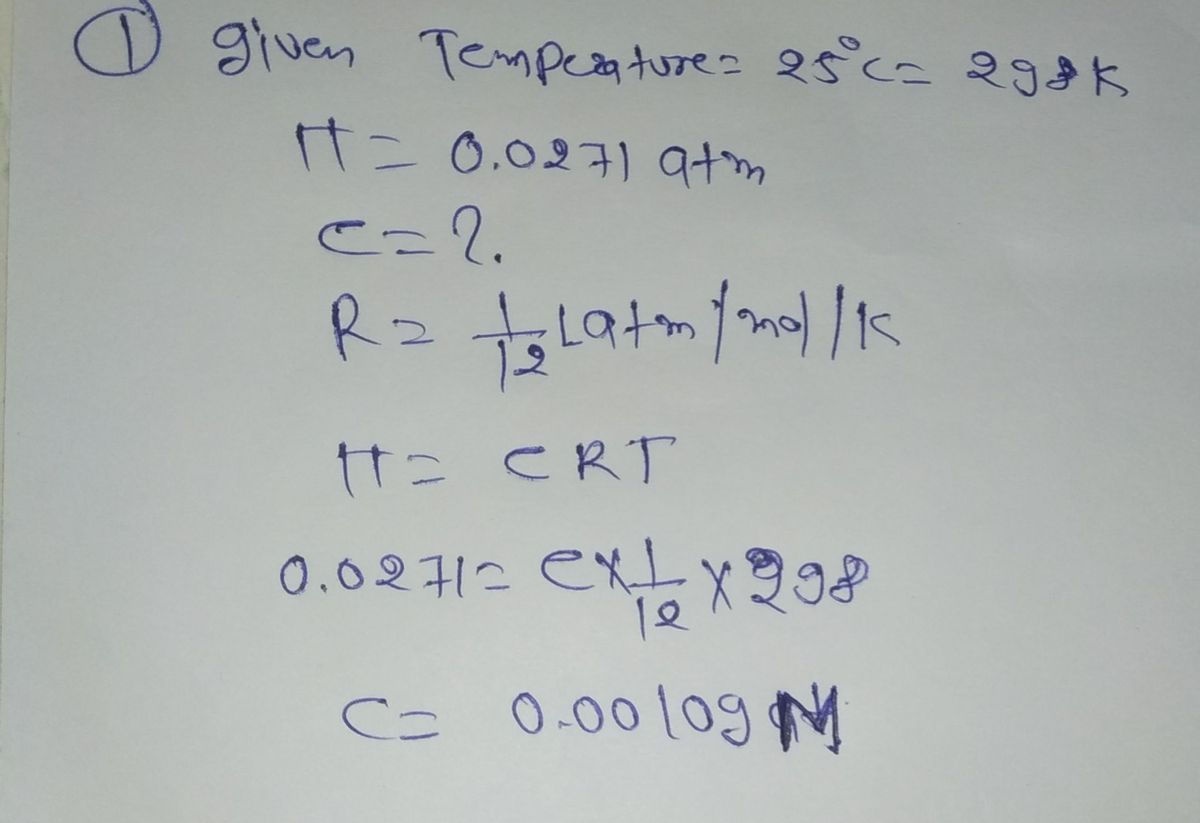 ① given Temperature = 25°C = 298K
π = 0.0271 atm
C = ?.
R = 1/12 L atm/mol/K
π = CRT
0.0271 = C × 1/12 × 298
C = 0.00109 M